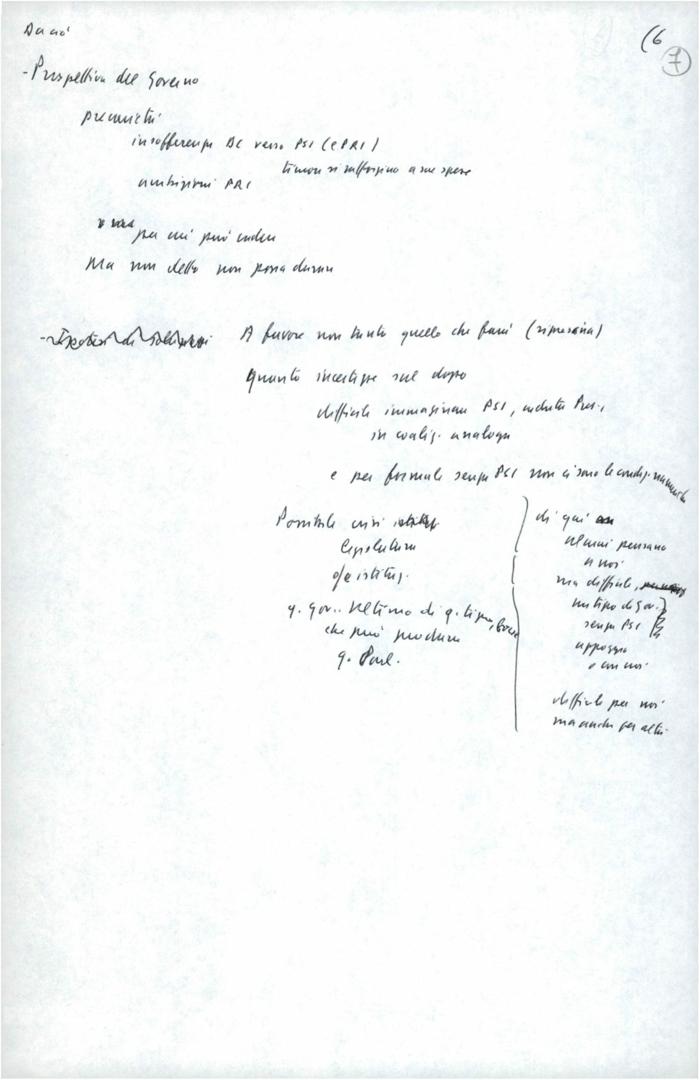 Da ciò
(6
7
- Prospettiva del Governo
precarietà
insofferenza DC verso PSI (e PRI)
timori si rafforzino a sue spese
ambizioni PRI
per cui può cadere
Ma non detto non possa durare
- Ipotesi di
A favore non tanto quello che farà (
quanto incertezze sul dopo
difficile immaginare PSI, caduta Pres.,
in coaliz. analoga
e per formule senza PSI non ci sono le condiz. numeriche
Possibile crisi
legislatura
o/e istituz.
q. Gov. ultimo di q. tipo,
che può produrre
q. Parl.
di qui
alcuni pensano
a noi
ma difficile,
un tipo di Gov.
senza PSI
appoggio
o con noi
difficile per noi
ma anche per altri